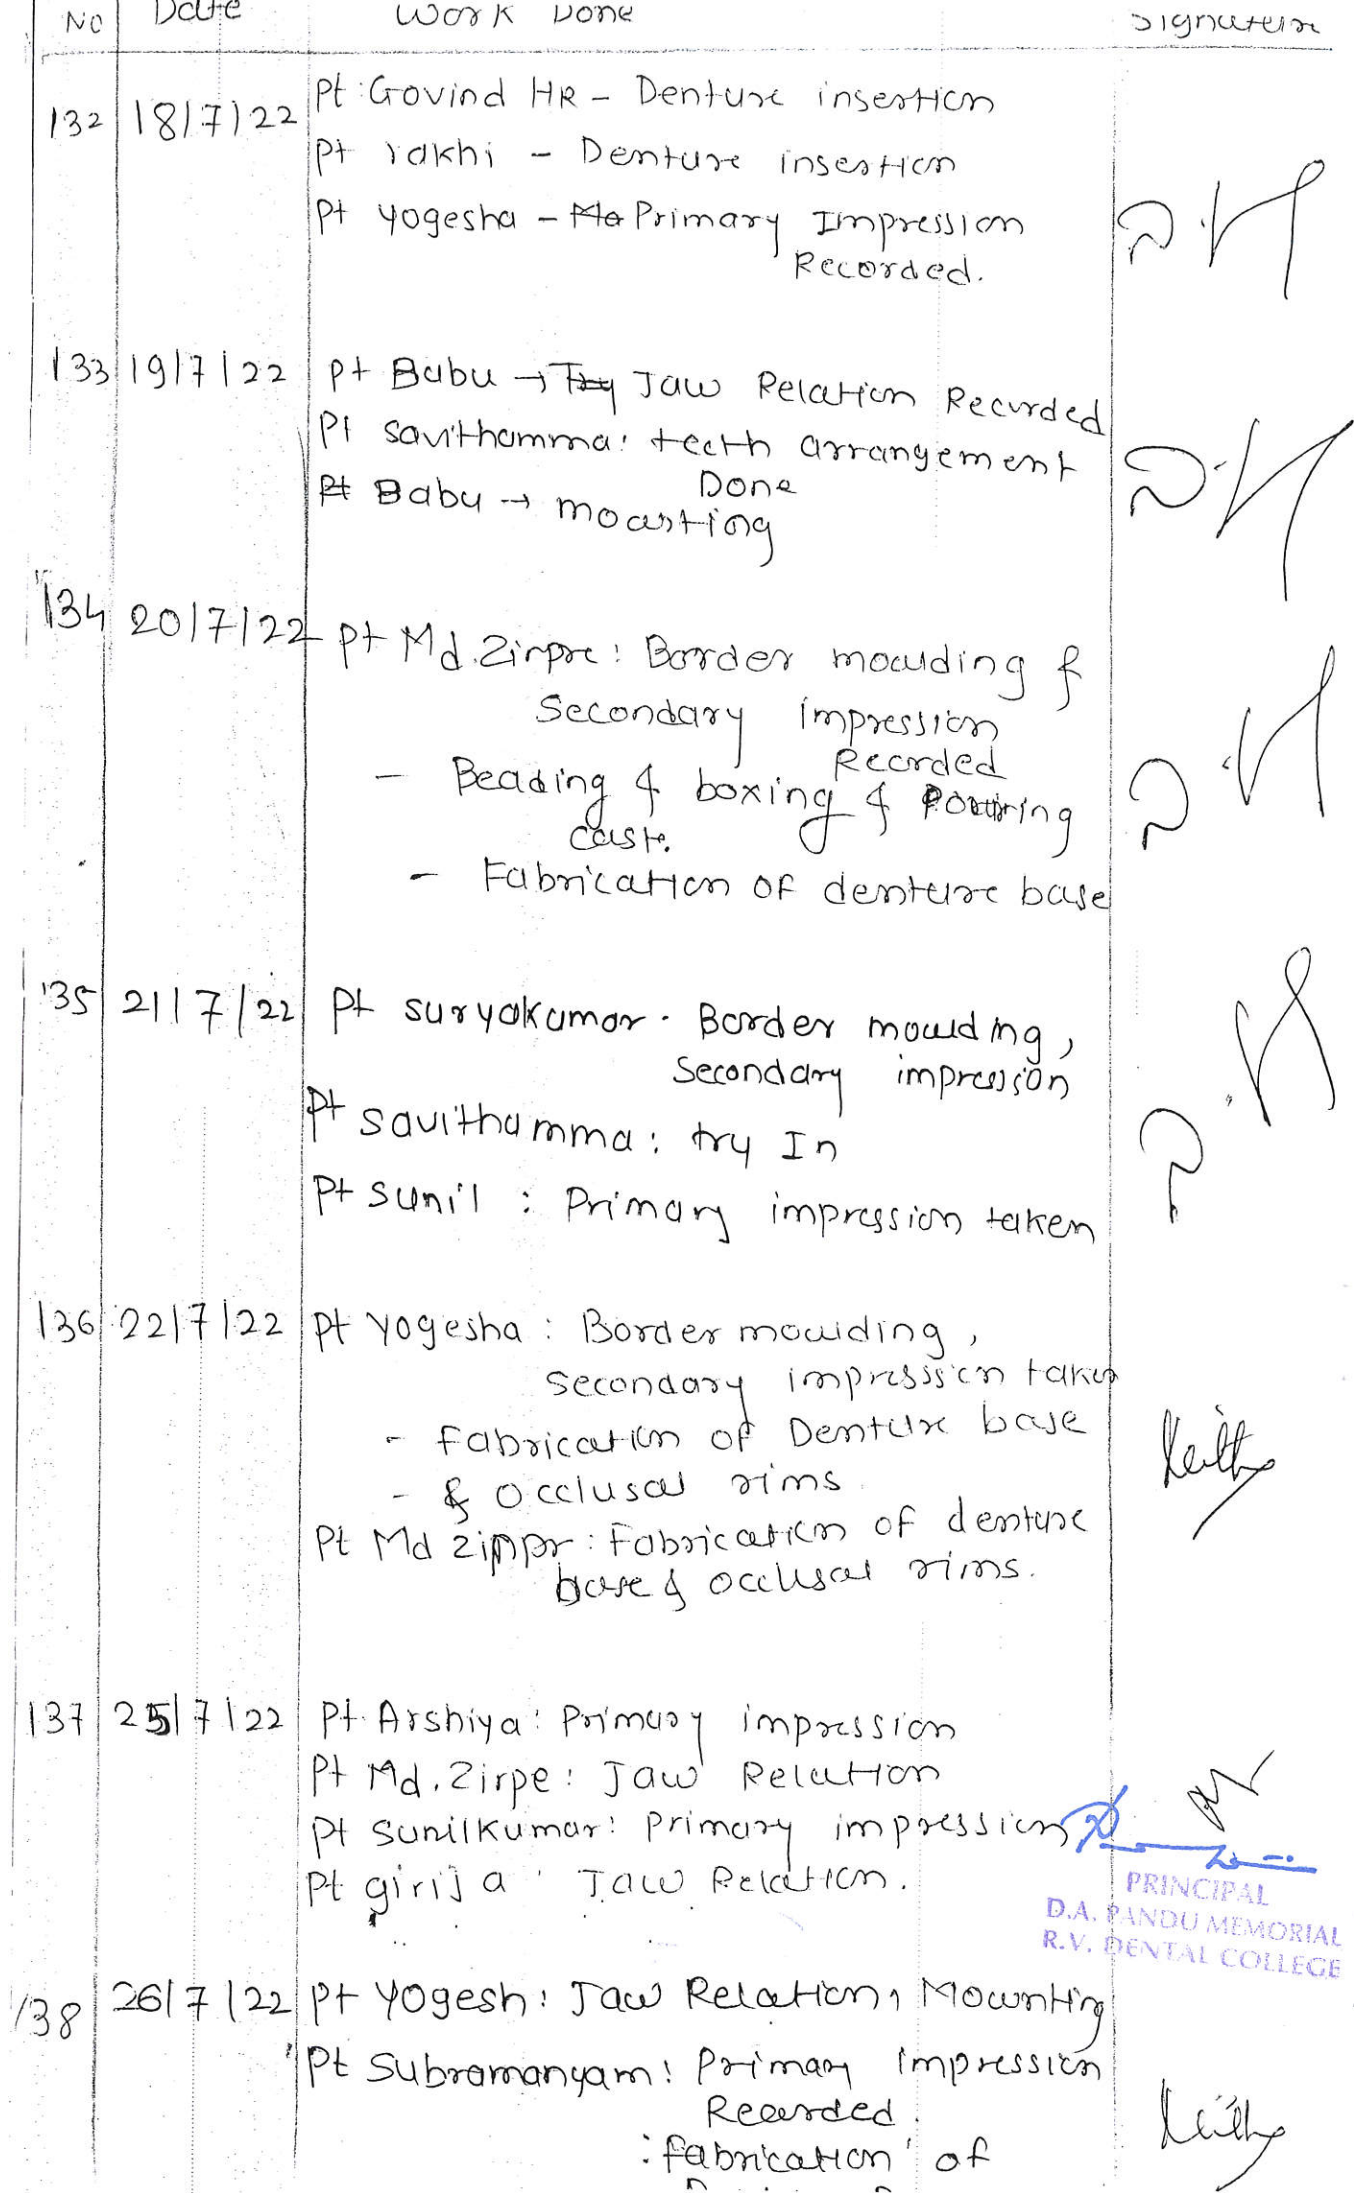 No Date Work Done Signature
132 18/7/22 Pt: Govind HR - Denture insertion
Pt rakhi - Denture insertion
Pt yogesha - Mo Primary Impression
Recorded.
133 19/7/22 Pt Babu → Try Jaw Relation Recorded
Pt savithamma: teeth arrangement
Done
Pt Babu → mounting
134 20/7/22 Pt Md. Zirpe: Border moulding &
Secondary impression
Recorded
- Beading & boxing & Pouring
cast.
- Fabrication of denture base
135 21/7/22 Pt suryakumar. Border moulding,
Secondary impression
Pt savithamma: try In
Pt sunil : Primary impression taken
136 22/7/22 Pt Yogesha : Border moulding,
secondary impression taken
- fabrication of Denture base
- & occlusal rims
Pt Md : Fabrication of denture
base & occlusal rims.
137 25/7/22 Pt. Arshiya: Primary impression
Pt Md. Zirpe: Jaw Relation
Pt sunilkumar: Primary impression
Pt girija : Jaw Relation.
PRINCIPAL
D.A. PANDU MEMORIAL
R.V. DENTAL COLLEGE
138 26/7/22 Pt Yogesh: Jaw Relation, Mounting
Pt Subramanyam: Primary impression
Recorded.
: fabrication of